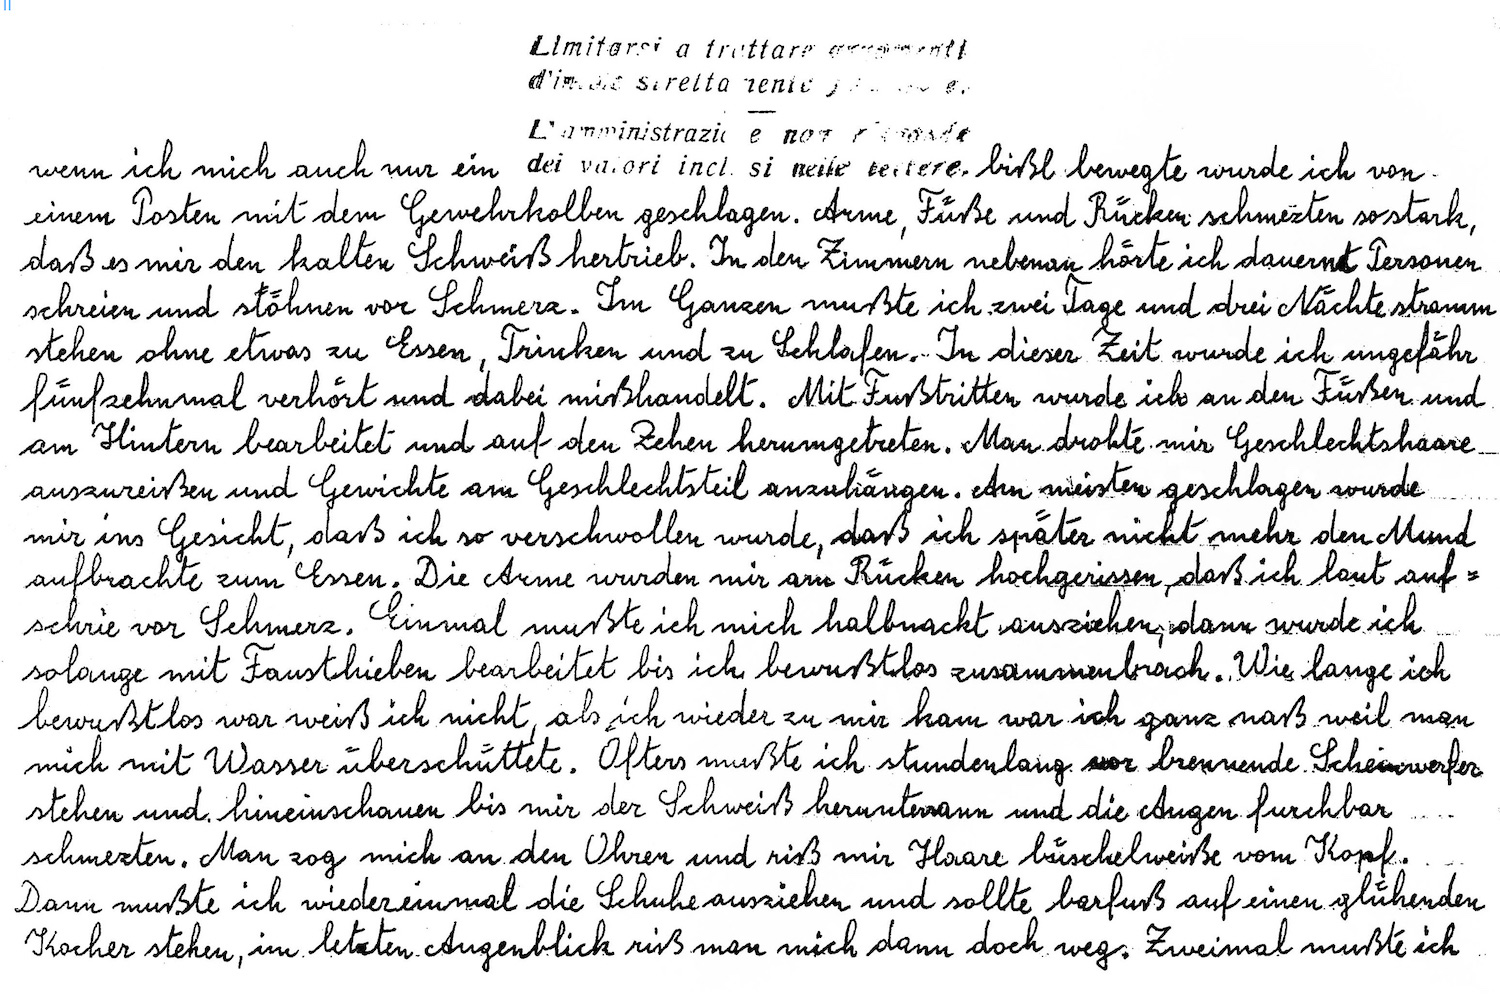 Limitarsi a trattare argomenti
d'indole strettamente
L'amministrazione non risponde
dei valori inclusi nelle lettere.
wenn ich mich auch nur ein bißl bewegte wurde ich von
einem Posten mit dem Gewehrkolben geschlagen. Arme, Füße und Rücken schmezten so stark,
daß es mir den kalten Schweiß hertrieb. In den Zimmern nebenan hörte ich dauernt Personen
schreien und stöhnen vor Schmerz. Im Ganzen mußte ich zwei Tage und drei Nächte stramm
stehen ohne etwas zu Essen, Trinken und zu Schlafen. In dieser Zeit wurde ich ungefähr
fünfzehnmal verhört und dabei mißhandelt. Mit Fußtritten wurde ich an den Füßen und
am Hintern bearbeitet und auf den Zehen herumgetreten. Man drohte mir Geschlechtshaare
auszureißen und Gewichte am Geschlechtsteil anzuhängen. Am meisten geschlagen wurde
mir ins Gesicht, daß ich so verschwollen wurde, daß ich später nicht mehr den Mund
aufbrachte zum Essen. Die Arme wurden mir am Rücken hochgerissen, daß ich laut auf=
schrie vor Schmerz. Einmal mußte ich mich halbnackt ausziehen, dann wurde ich
solange mit Fausthieben bearbeitet bis ich bewußtlos zusammenbrach. Wie lange ich
bewußtlos war weiß ich nicht, als ich wieder zu mir kam war ich ganz naß weil man
mich mit Wasser überschüttete. Öfters mußte ich stundenlang vor brennende Scheinwerfer
stehen und hineinschauen bis mir der Schweiß herunterrann und die Augen furchbar
schmezten. Man zog mich an den Ohren und riß mir Haare büschelweiße vom Kopf.
Dann mußte ich wiedereinmal die Schuhe ausziehen und sollte barfuß auf einen glühenden
Kocher stehen, im letzten Augenblick riß man mich dann doch weg. Zweimal mußte ich